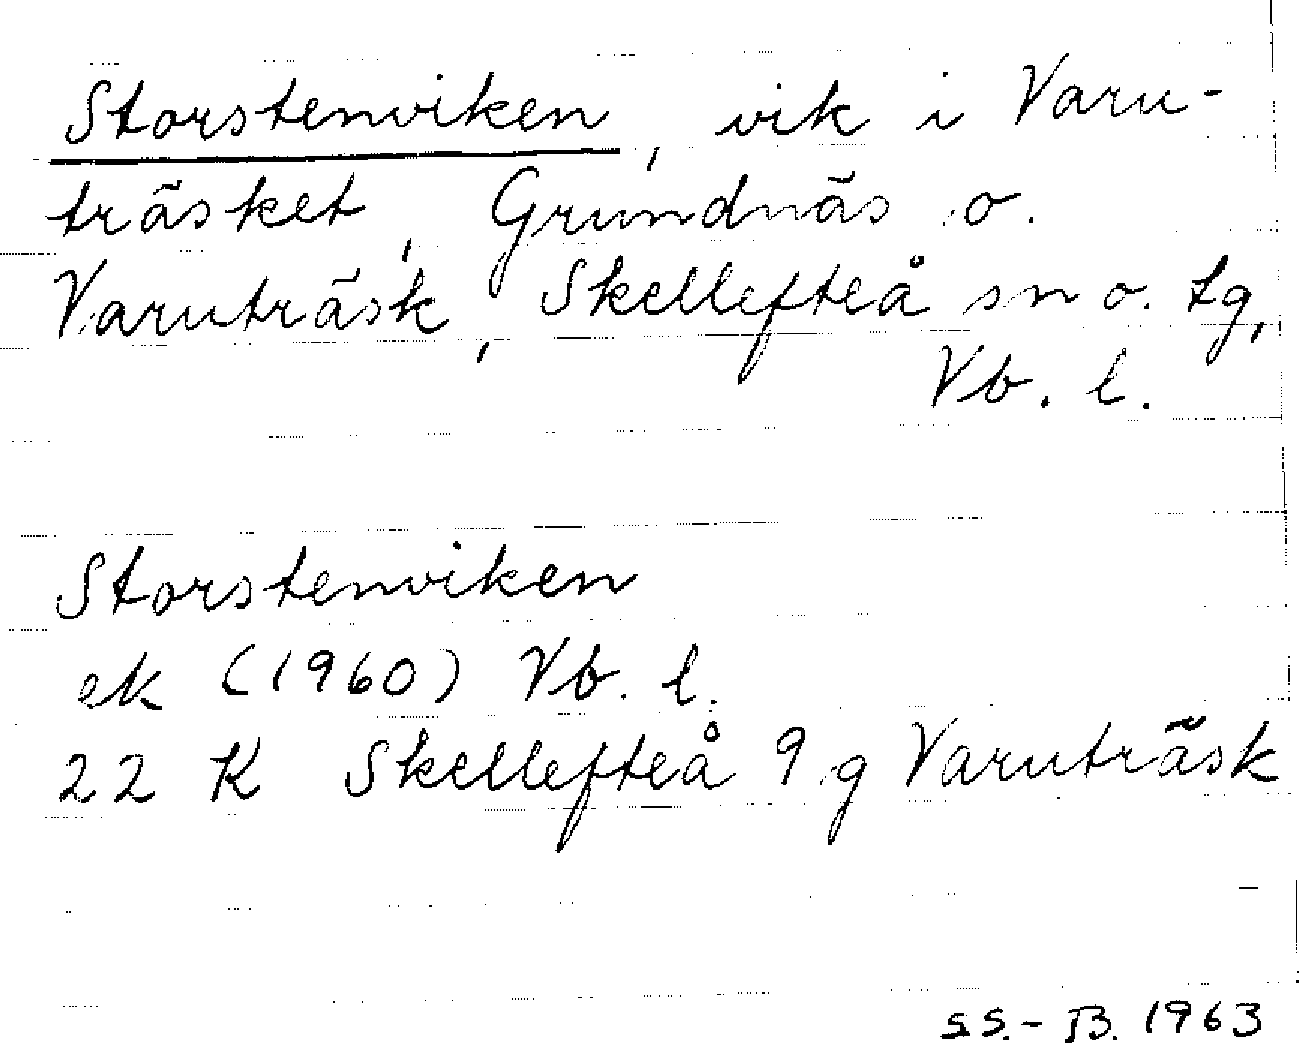 Storstenviken, vik i Varu-
träsket, Grundnäs o.
Varuträsk, Skellefteå sn o. tg,
Vb. l.
Storstenviken
ek (1960) Vb. l.
22 K Skellefteå 9 g Varuträsk
S.S.-B. 1963